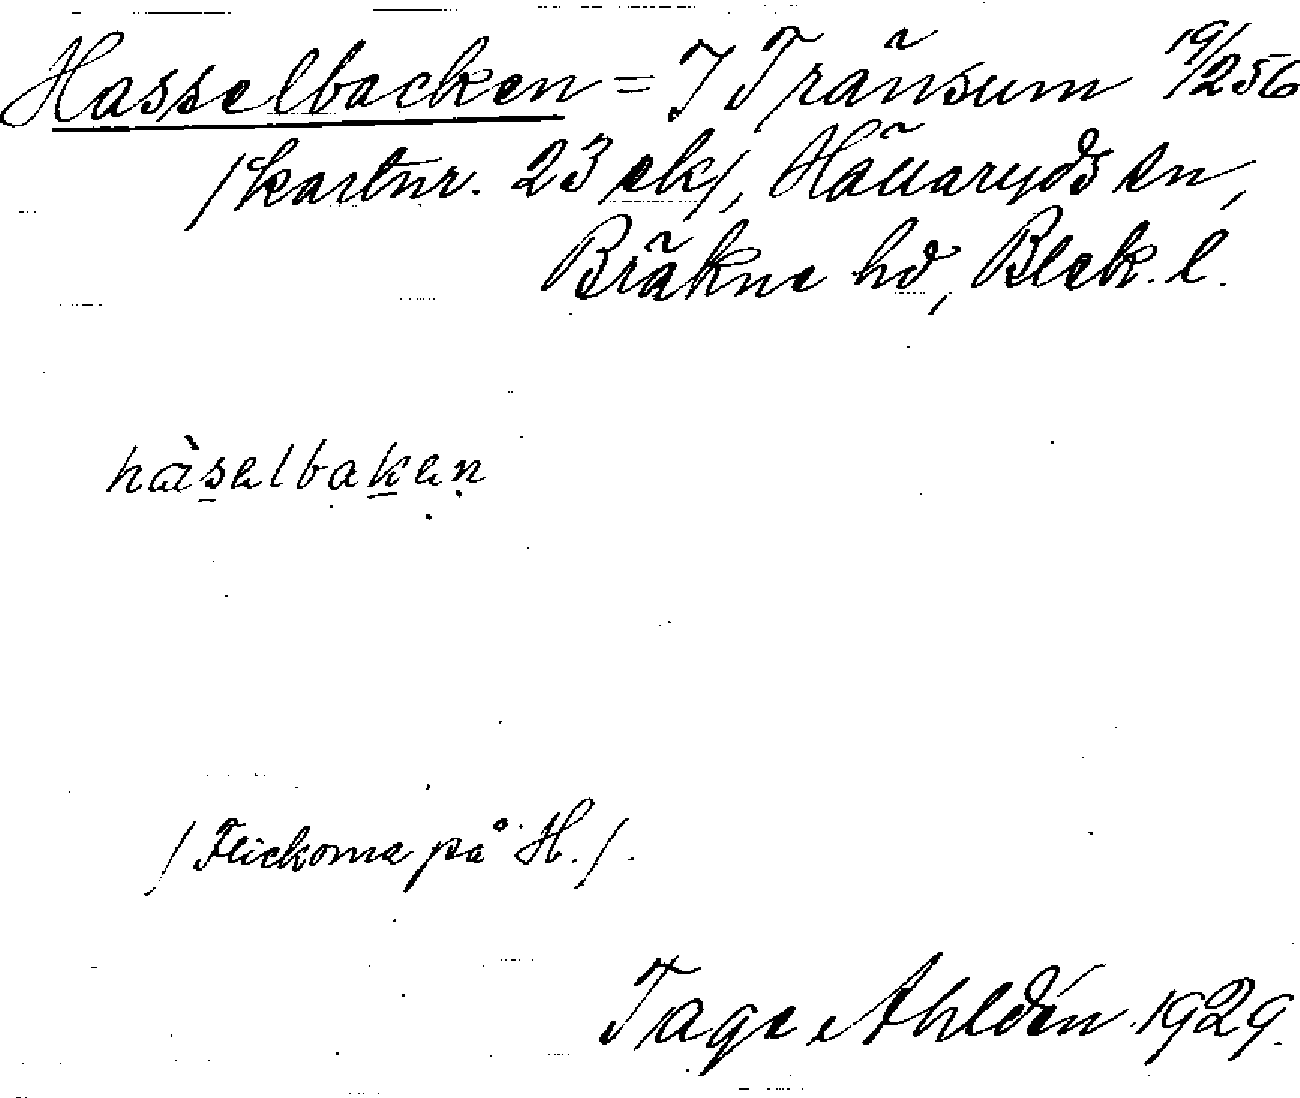 Hasselbacken = I Tränsum 19/2 56
/kartnr. 23 ek/, Hällaryds sn,
Bräkne hd, Blek. l.
hàselbaken
/Flickorna på H./.
Tage Ahldén 1929.